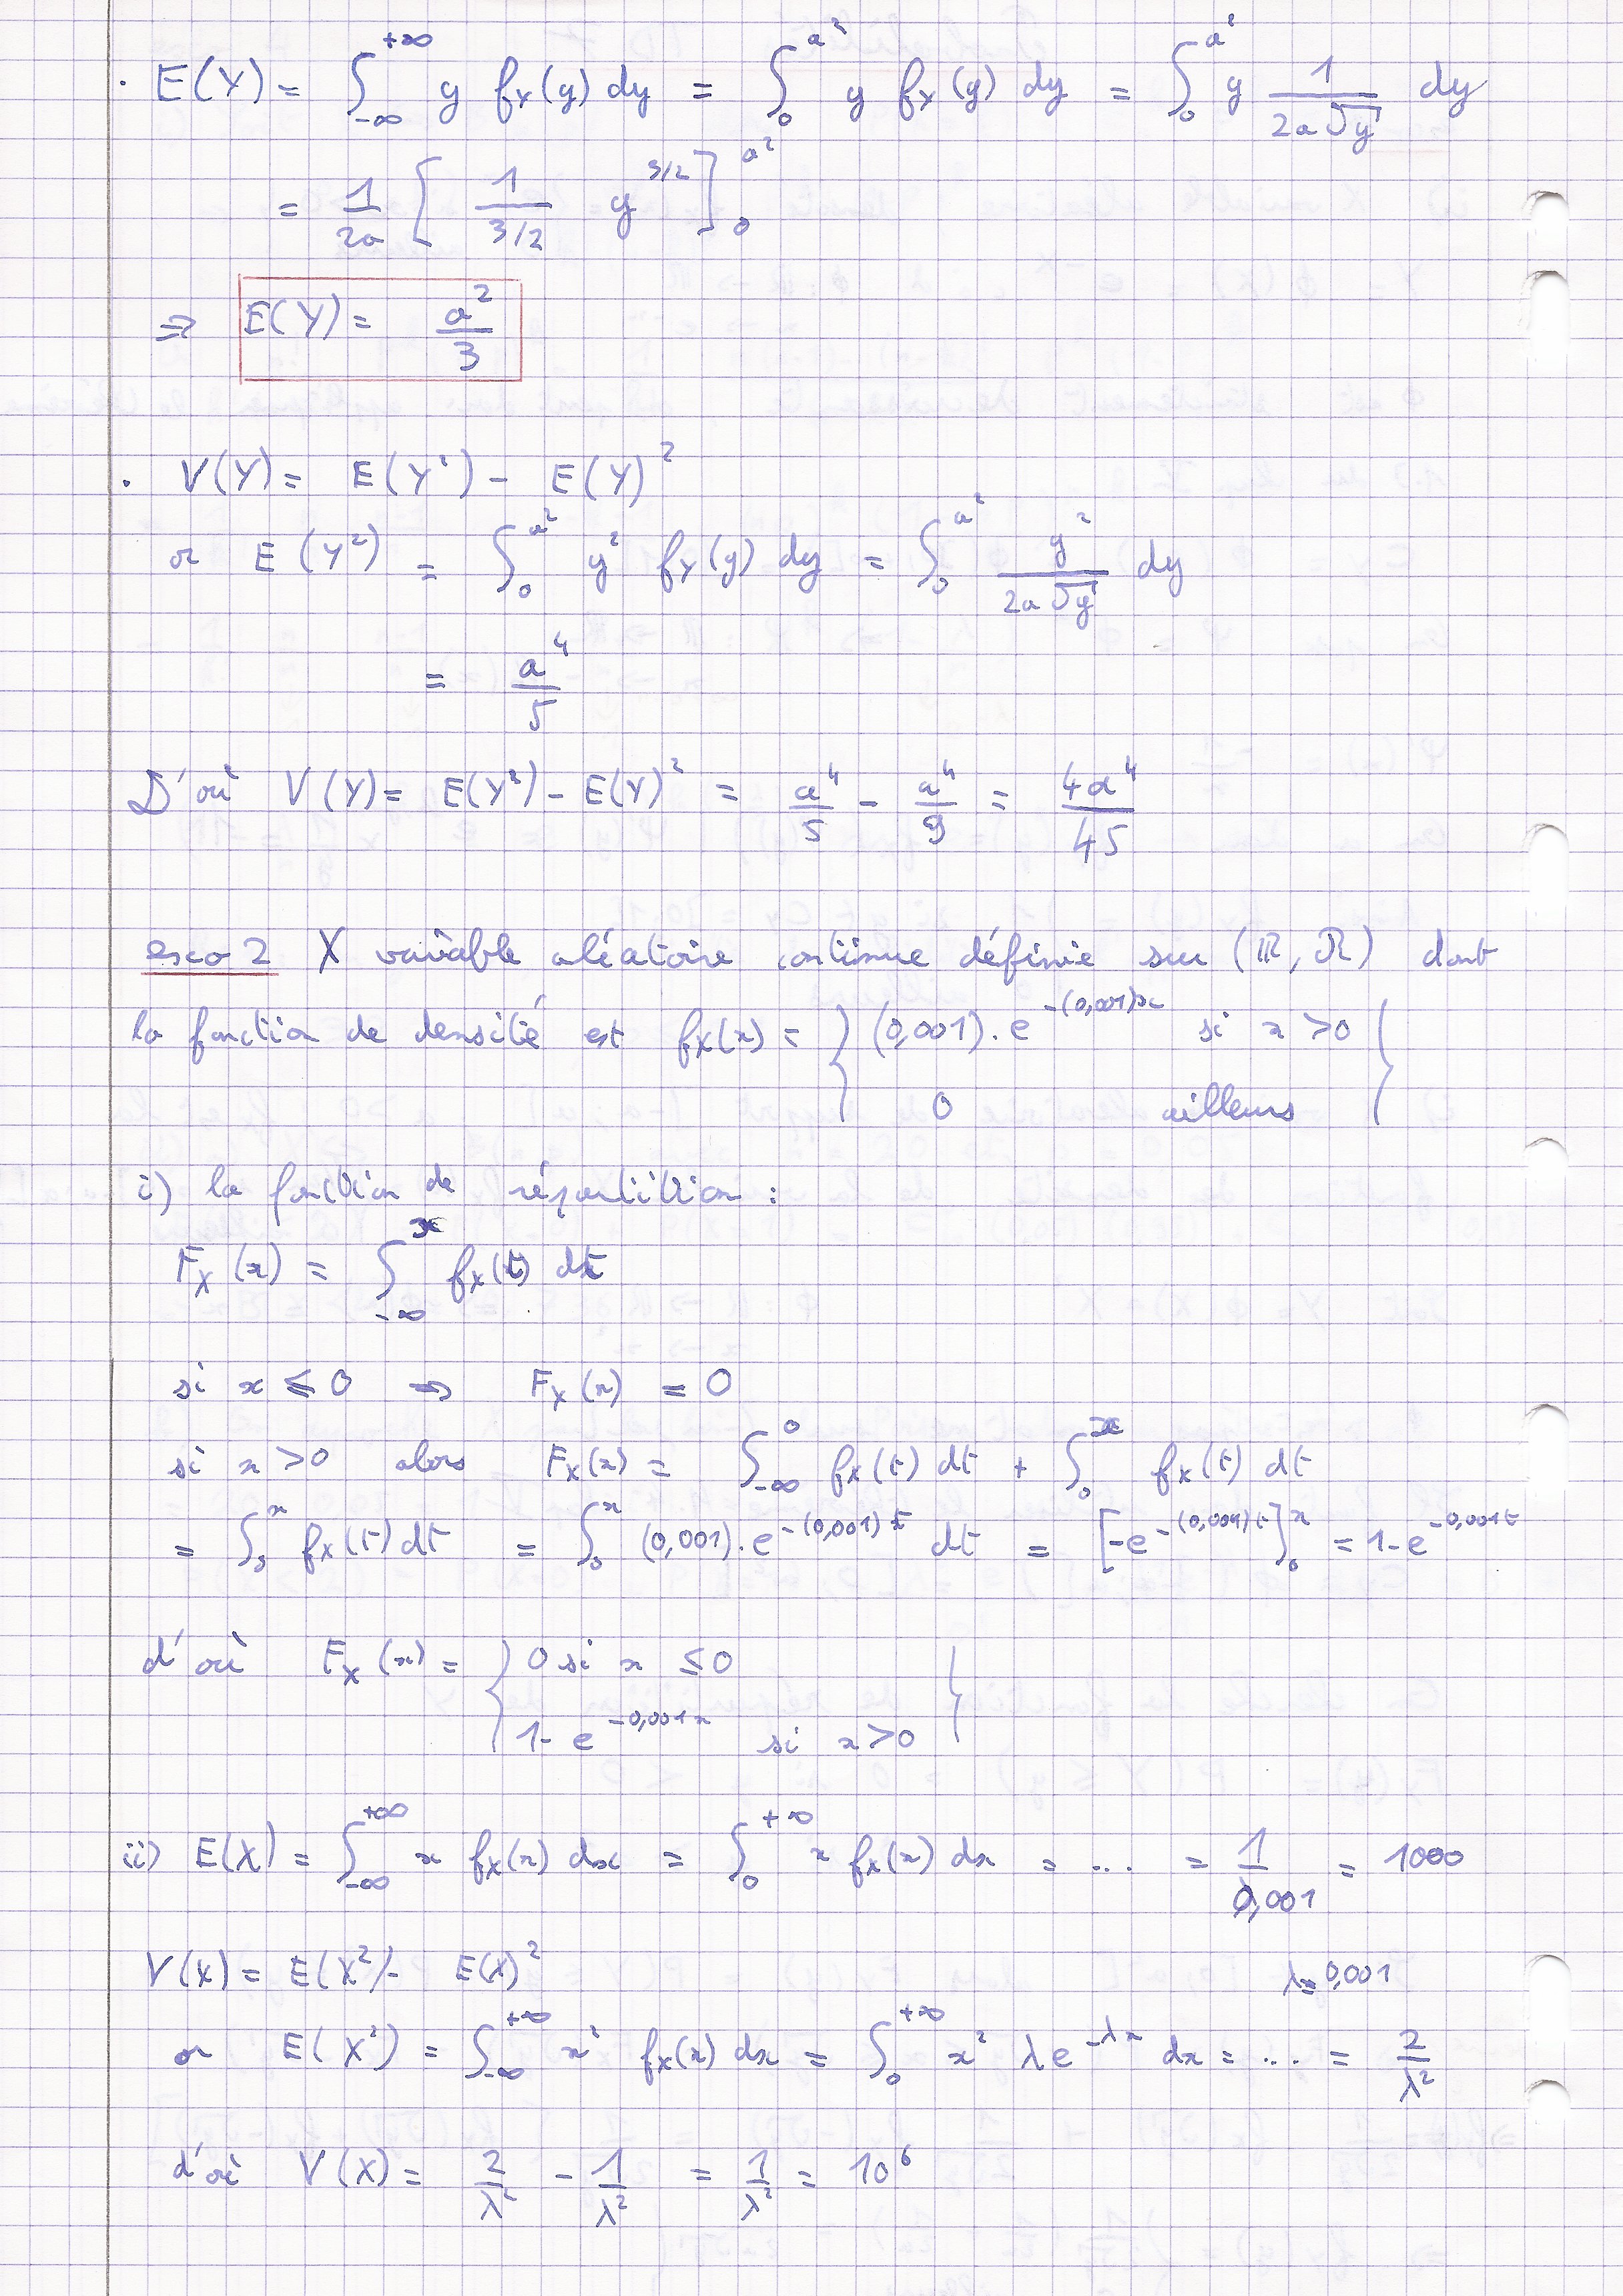 · E(Y) = ∫_{-∞}^{+∞} y f_Y(y) dy = ∫_0^{a²} y f_Y(y) dy = ∫_0^{a²} y 1/(2a√y) dy
= 1/2a [ 1/(3/2) y^{3/2} ]_0^{a²}
⇒ E(Y) = a²/3
· V(Y) = E(Y²) - E(Y)²
or E(Y²) = ∫_0^{a²} y² f_Y(y) dy = ∫_0^{a²} y²/(2a√y) dy
= a⁴/5
D'où V(Y) = E(Y²) - E(Y)² = a⁴/5 - a⁴/9 = 4a⁴/45
exo 2 X variable aléatoire continue définie sur (ℝ, ℛ) dont
la fonction de densité est f_X(x) = { (0,001). e^{-(0,001)x} si x > 0 }
0 ailleurs
i) la fonction de répartition :
F_X(x) = ∫_{-∞}^{x} f_X(t) dt
si x ≤ 0 ⇒ F_X(x) = 0
si x > 0 alors F_X(x) = ∫_{-∞}^0 f_X(t) dt + ∫_0^x f_X(t) dt
= ∫_0^x f_X(t) dt = ∫_0^x (0,001). e^{-(0,001)t} dt = [-e^{-(0,001)t}]_0^x = 1-e^{-0,001t}
d'où F_X(x) = { 0 si x ≤ 0 }
1- e^{-0,001x} si x > 0
ii) E(X) = ∫_{-∞}^{+∞} x f_X(x) dx = ∫_0^{+∞} x f_X(x) dx = ... = 1/0,001 = 1000
V(X) = E(X²) - E(X)² λ = 0,001
or E(X²) = ∫_{-∞}^{+∞} x² f_X(x) dx = ∫_0^{+∞} x² λe^{-λx} dx = ... = 2/λ²
d'où V(X) = 2/λ² - 1/λ² = 1/λ² = 10⁶